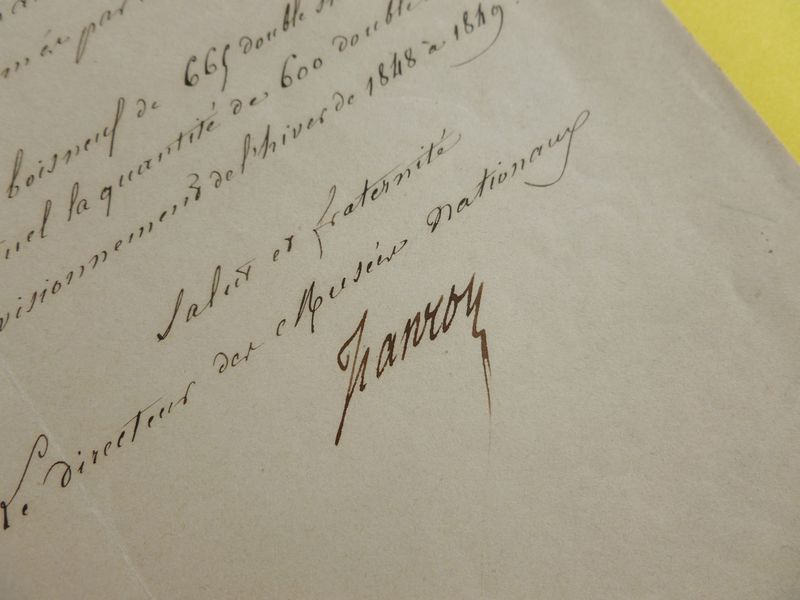 par
boisneuf de 665 double st
tuel la quantité de 600 double
visionnement de l'hiver de 1848 à 1849.
Salut et fraternité
Le directeur des Musées nationaux
Jeanron